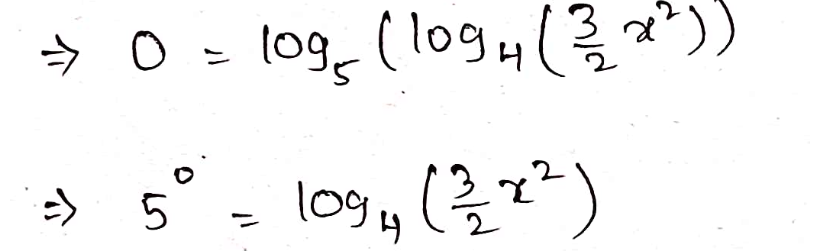 ⇒ 0 = log₅ (log₄ (3/2 x²))
⇒ 5⁰ = log₄ (3/2 x²)